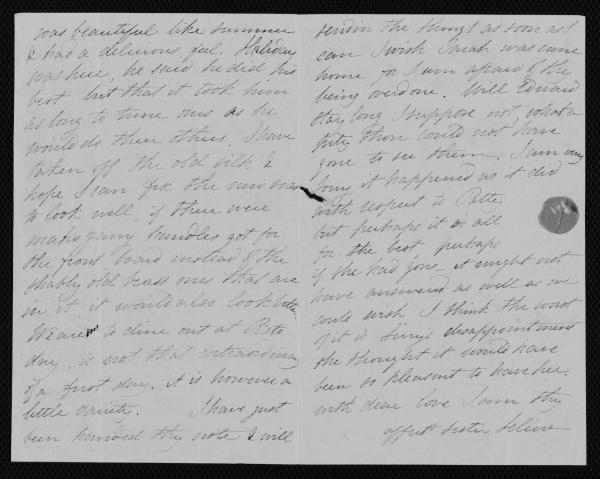 was beautiful like summer
& had a delicious feel. Holiday
was here, he said he did his
best but that it took him
as long to tune ours as he
would do them three. I have
taken off the old silk &
hope I can fix the new so as
to look well. if there were
mahogany handles got for
the front board instead of the
shabby old brass ones that are
in it it would also look better.
We are to dine out at
day, is not that extraordinary
of a first day. it is however a
little variety. I have just
been handed thy note & will
send in the things as soon as I
can I wish Sarah was come
home for I am afraid of thy
being overdone. Will Edward
stay long I suppose not, what a
pity thou could not have
gone to see them. I am very
sorry it happened as it did
with respect to
but perhaps it is all
for the best perhaps
if she had gone it might not
have answered as well as we
could wish I think the worst
of it is disappointment
she thought it would have
been so pleasant to have her.
with dear love I am thy
affect sister